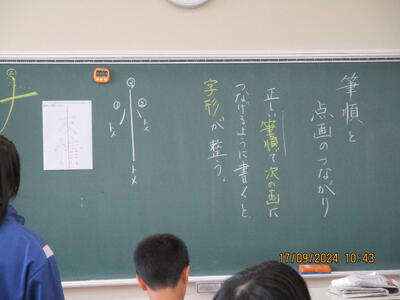 筆順と
点画のつながり
正しい筆順で次の画に
つなげるように書くと
字形が整う。
①
②
17/09/2024 10:43